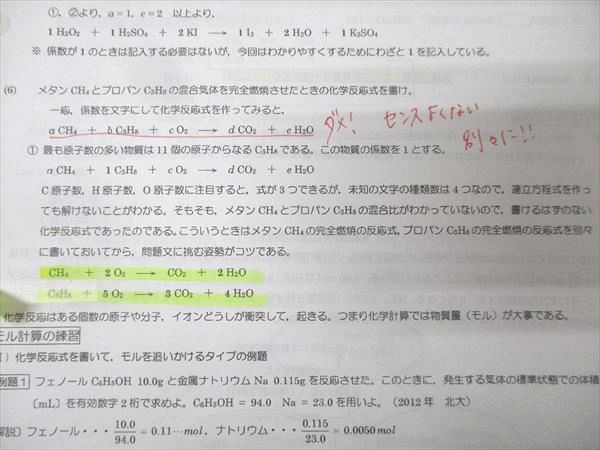 ①、②より、a=1、e=2 以上より、
1 H₂O₂ + 1 H₂SO₄ + 2 KI → 1 I₂ + 2 H₂O + 1 K₂SO₄
※ 係数が1のときは記入する必要はないが、今回はわかりやすくするためにわざと1を記入している。
(6) メタン CH₄とプロパン C₃H₈の混合気体を完全燃焼させたときの化学反応式を書け。
一応、係数を文字にして化学反応式を作ってみると、
a CH₄ + b C₃H₈ + c O₂ → d CO₂ + e H₂O ダメ! センスよくない 別々に!!
① 最も原子数の多い物質は 11 個の原子からなる C₃H₈である。この物質の係数を1とする。
a CH₄ + 1 C₃H₈ + c O₂ → d CO₂ + e H₂O
C 原子数、H 原子数、O 原子数に注目すると、式が3つできるが、未知の文字の種類数は4つなので、連立方程式を作っ
ても解けないことがわかる。そもそも、メタン CH₄とプロパン C₃H₈の混合比がわかっていないので、書けるはずのない
化学反応式であったのである。こういうときはメタン CH₄の完全燃焼の反応式、プロパン C₃H₈の完全燃焼の反応式を別々
に書いておいてから、問題文に挑む姿勢がコツである。
CH₄ + 2 O₂ → CO₂ + 2 H₂O
C₃H₈ + 5 O₂ → 3 CO₂ + 4 H₂O
化学反応はある個数の原子や分子、イオンどうしが衝突して、起きる。つまり化学計算では物質量(モル)が大事である。
モル計算の練習
)化学反応式を書いて、モルを追いかけるタイプの例題
例題1 フェノール C₆H₅OH 10.0g と金属ナトリウム Na 0.115g を反応させた。このときに、発生する気体の標準状態での体積
〔mL〕を有効数字2桁で求めよ。C₆H₅OH = 94.0 Na = 23.0 を用いよ。(2012年 北大)
解説〕フェノール・・・ 10.0/94.0 = 0.11…mol、ナトリウム・・・ 0.115/23.0 = 0.0050mol